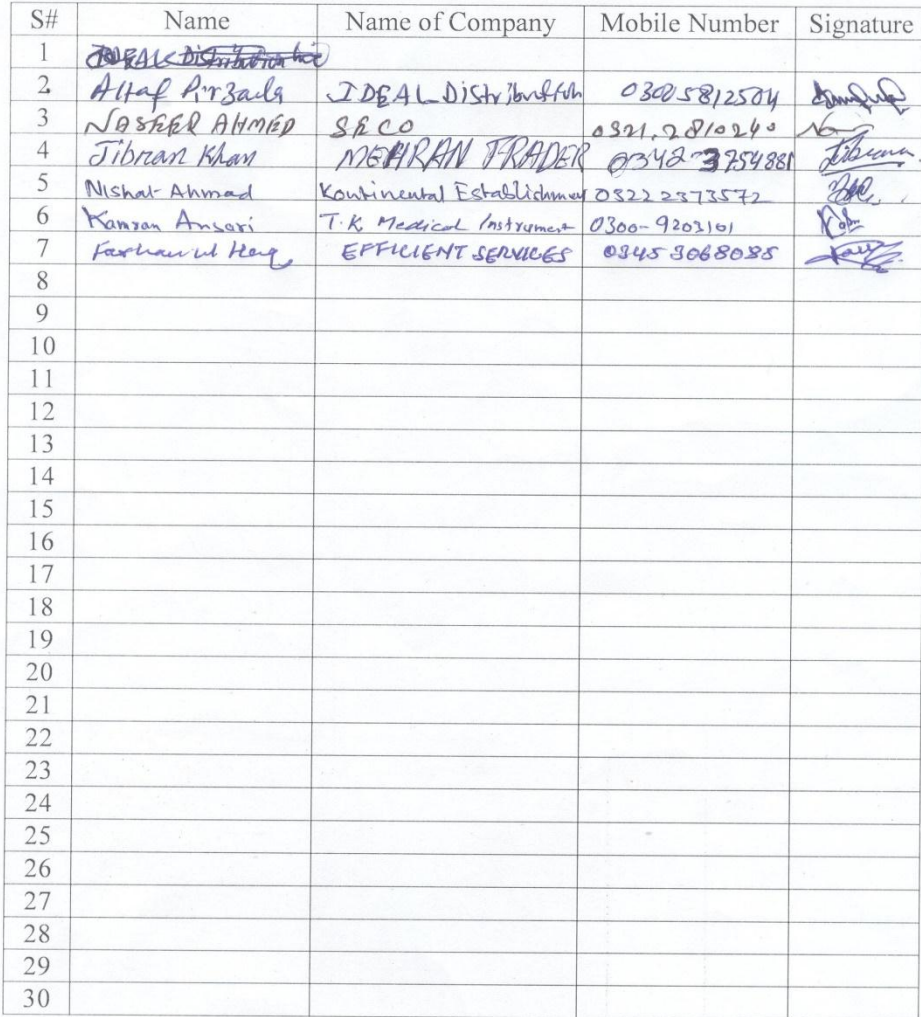 S# Name Name of Company Mobile Number Signature
1 IDEAL Distribution
2 Altaf Pirzada IDEAL Distribution 03005812504
3 NASEER AHMED SECO 0321.2810240
4 Jibran Khan MEHRAN TRADER 0342-3754881 Jibran
5 Nishat Ahmad Kontinental Establishment 03222373572
6 Kamran Ansari T.K. Medical Instrument 0300-9203101
7 Farhan ul Haq EFFICIENT SERVICES 03453068085
8
9
10
11
12
13
14
15
16
17
18
19
20
21
22
23
24
25
26
27
28
29
30